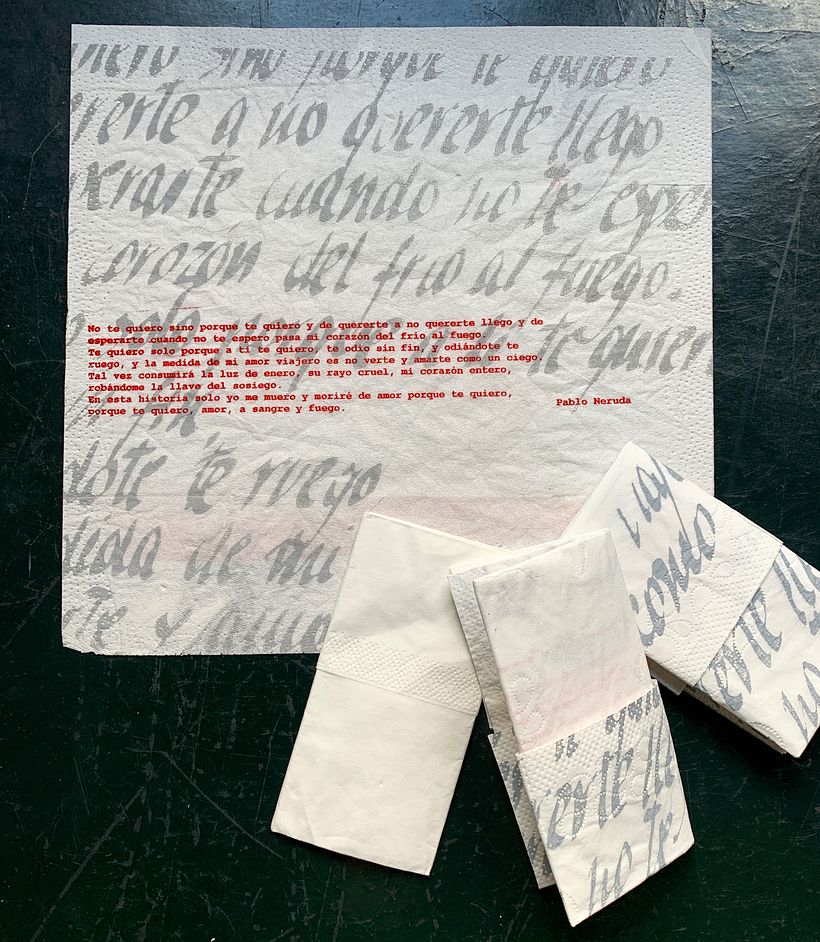 sino porque te quiero
rerte a no quererte llego
cuando no te espe
corazón del frio al fuego.
No te quiero sino porque te quiero y de quererte a no quererte llego y de
esperarte cuando no te espero pasa mi corazón del frío al fuego.
Te quiero solo porque a ti te quiero, te odio sin fin, y odiándote te
ruego, y la medida de mi amor viajero es no verte y amarte como un ciego.
Tal vez consumirá la luz de enero, su rayo cruel, mi corazón entero,
robándome la llave del sosiego.
En esta historia solo yo me muero y moriré de amor porque te quiero,
porque te quiero, amor, a sangre y fuego.
Pablo Neruda
dote te ruego
dida de mi
te y
rerte lle
no te